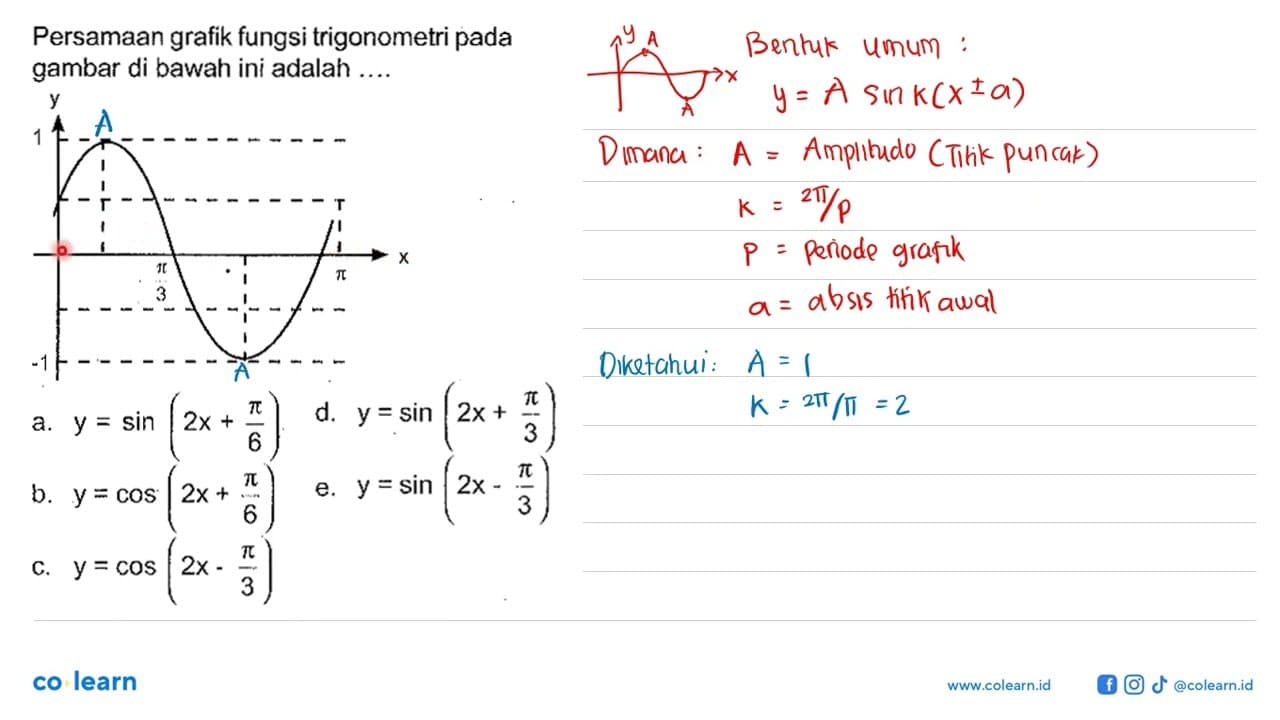 Persamaan grafik fungsi trigonometri pada
gambar di bawah ini adalah ....
y
1
A
x
π
3
π
-1
A
a. y = sin (2x + π/6)
b. y = cos (2x + π/6)
c. y = cos (2x - π/3)
d. y = sin (2x + π/3)
e. y = sin (2x - π/3)
y
A
x
A
Bentuk umum :
y = A sin k(x ± a)
Dimana : A = Amplitudo (Titik puncak)
k = 2π/p
p = periode grafik
a = absis titik awal
Diketahui : A = 1
k = 2π/π = 2
co learn
www.colearn.id
@colearn.id